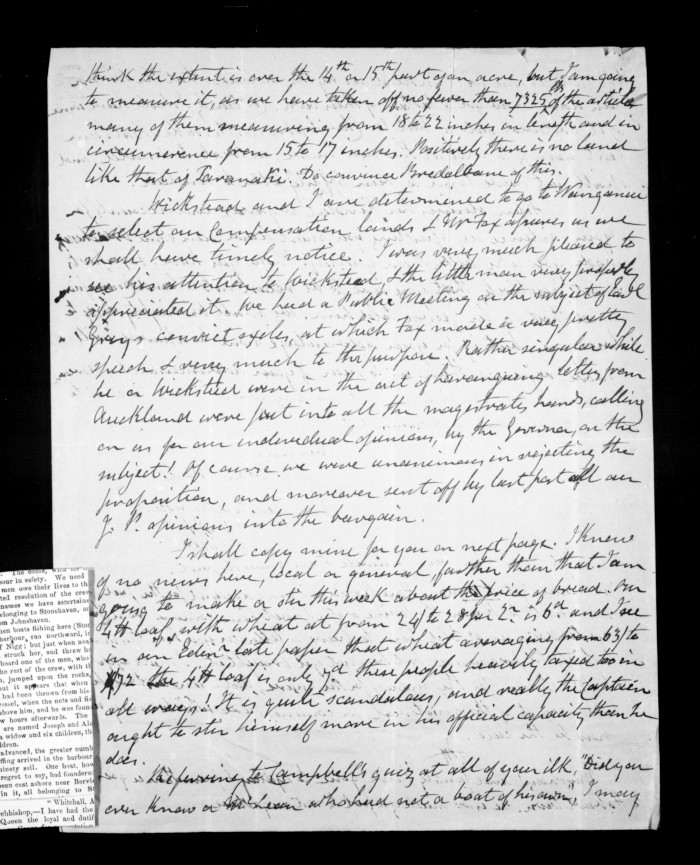 think the extent is over the 14th or 15th part of an acre, but I am going
to measure it, as we have taken off no fewer than 7325 lbs of the article
many of them measuring from 18 to 22 inches in length and in
circumerence from 15 to 17 inches. Positively there is no land
like that of Taranaki. Do convince Bredalbane of this.
Wickstead and I are determined to go to Wanganui
to select our Compensation lands & Mr Fox assures us we
shall have timely notice. I was very much pleased to
see his attention to Wicksteed, & the little man very properly
appreciated it. We had a Public Meeting on the subject of Earl
Greys convict exiles, at which Fox made a very pretty
speech & very much to the purpose. Rather singular while
he or Wicksteed were in the act of haranguing letters from
Auckland were put into all the magistrates hands, calling
on us for our individual opinions, by the Governor, on the
subject! Of course we were unanimous in rejecting the
proposition, and moreover sent off by last post all our
J. P. opinions into the bargain.
I shall copy mine for you on next page. I know
of no news here, local or general, farther than that I am
going to make a stir this week about the price of bread. Our
4 lb loaf with wheat at from 24/ to 28 per Br. is 6d and I see
in an Edinr late paper that wheat averaging from 63/ to
72 the 4 lb loaf is only 7d these people heavily taxed too in
all ways! It is quite scandalous, and really the Captain
ought to stir himself more in his official capacity than he
does.
Referring to Campbell's quiz at all of your ilk, "Did you
ever know a McLean who had not a boat of his own", I may
our in safety. We need
men owe their lives to th
ted resolution of the crew
names we have ascertain
belonging to Stonehaven,
om Johnshaven.
hen boats fishing here (Sto
harbour, ran northward, i
f Nigg; but just when nea
struck her, and threw h
board one of the men, who
the rest of the crew, with th
jumped upon the rocks,
but it appears that when
had been thrown from his
vessel, when the nets and fis
above him, and he was foun
w hours afterwards. The
are named Joseph and Ale
a widow and six children, th
ldren.
advanced, the greater numb
ffing arrived in the harbour
mizenly sail. One boat, how
regret to say, had foundere
been cast ashore near Bervie
in it, all belonging to St
"Whitehall, A
rchbishop,—I have had the
Queen the loyal and dutif